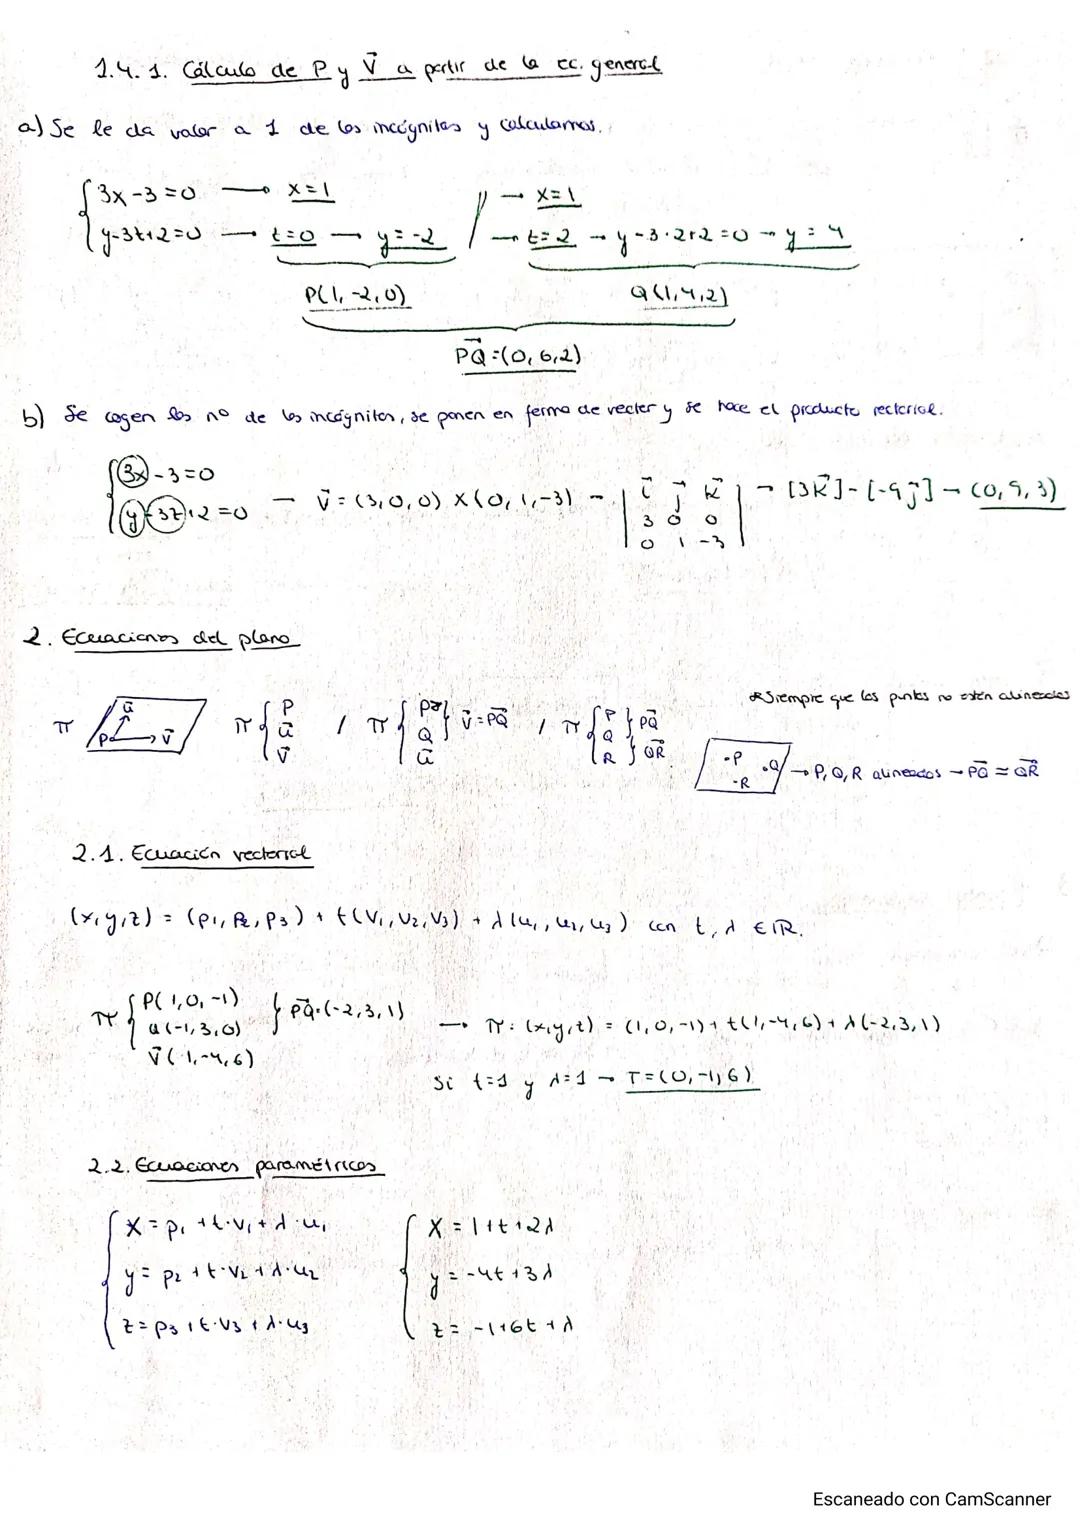 1.4.1. Cálculo de P y V⃗ a partir de la ec. general
a) Se le da valor a 1 de las incógnitas y calculamos.
{ 3x-3=0 → x=1 // → x=1
{ y-3z+2=0 → z=0 → y=-2 / → z=2 → y-3·2+2=0 → y=4
P(1,-2,0) Q(1,4,2)
PQ⃗=(0,6,2)
b) Se cogen los nº de las incógnitas, se ponen en forma de vector y se hace el producto vectorial.
{ 3x-3=0
{ y-3z+2=0 → v⃗=(3,0,0)×(0,1,-3) → | i⃗ j⃗ k⃗ | → [3k⃗]-[-9j⃗] → (0,9,3)
3 0 0
0 1 -3
2. Ecuaciones del plano
*Siempre que los puntos no estén alineados
π P u⃗ v⃗ π { P u⃗ v⃗ / π { P Q u⃗ } v⃗=PQ⃗ / π { P Q R } PQ⃗ } QR⃗
·P ·Q ·R → P, Q, R alineados → PQ⃗ = QR⃗
2.1. Ecuación vectorial
(x,y,z) = (p₁, p₂, p₃) + t(v₁, v₂, v₃) + λ(u₁, u₂, u₃) con t, λ ∈ ℝ.
π { P(1,0,-1)
Q(-1,3,0) } PQ⃗=(-2,3,1) → π: (x,y,z) = (1,0,-1)+t(1,-4,6)+λ(-2,3,1)
v⃗(1,-4,6)
Si t=1 y λ=1 → T=(0,-1,6)
2.2. Ecuaciones paramétricas
{ x = p₁ + t·v₁ + λ·u₁ { x = 1+t+2λ
{ y = p₂ + t·v₂ + λ·u₂ { y = -4t+3λ
{ z = p₃ + t·v₃ + λ·u₃ { z = -1+6t+λ
Escaneado con CamScanner